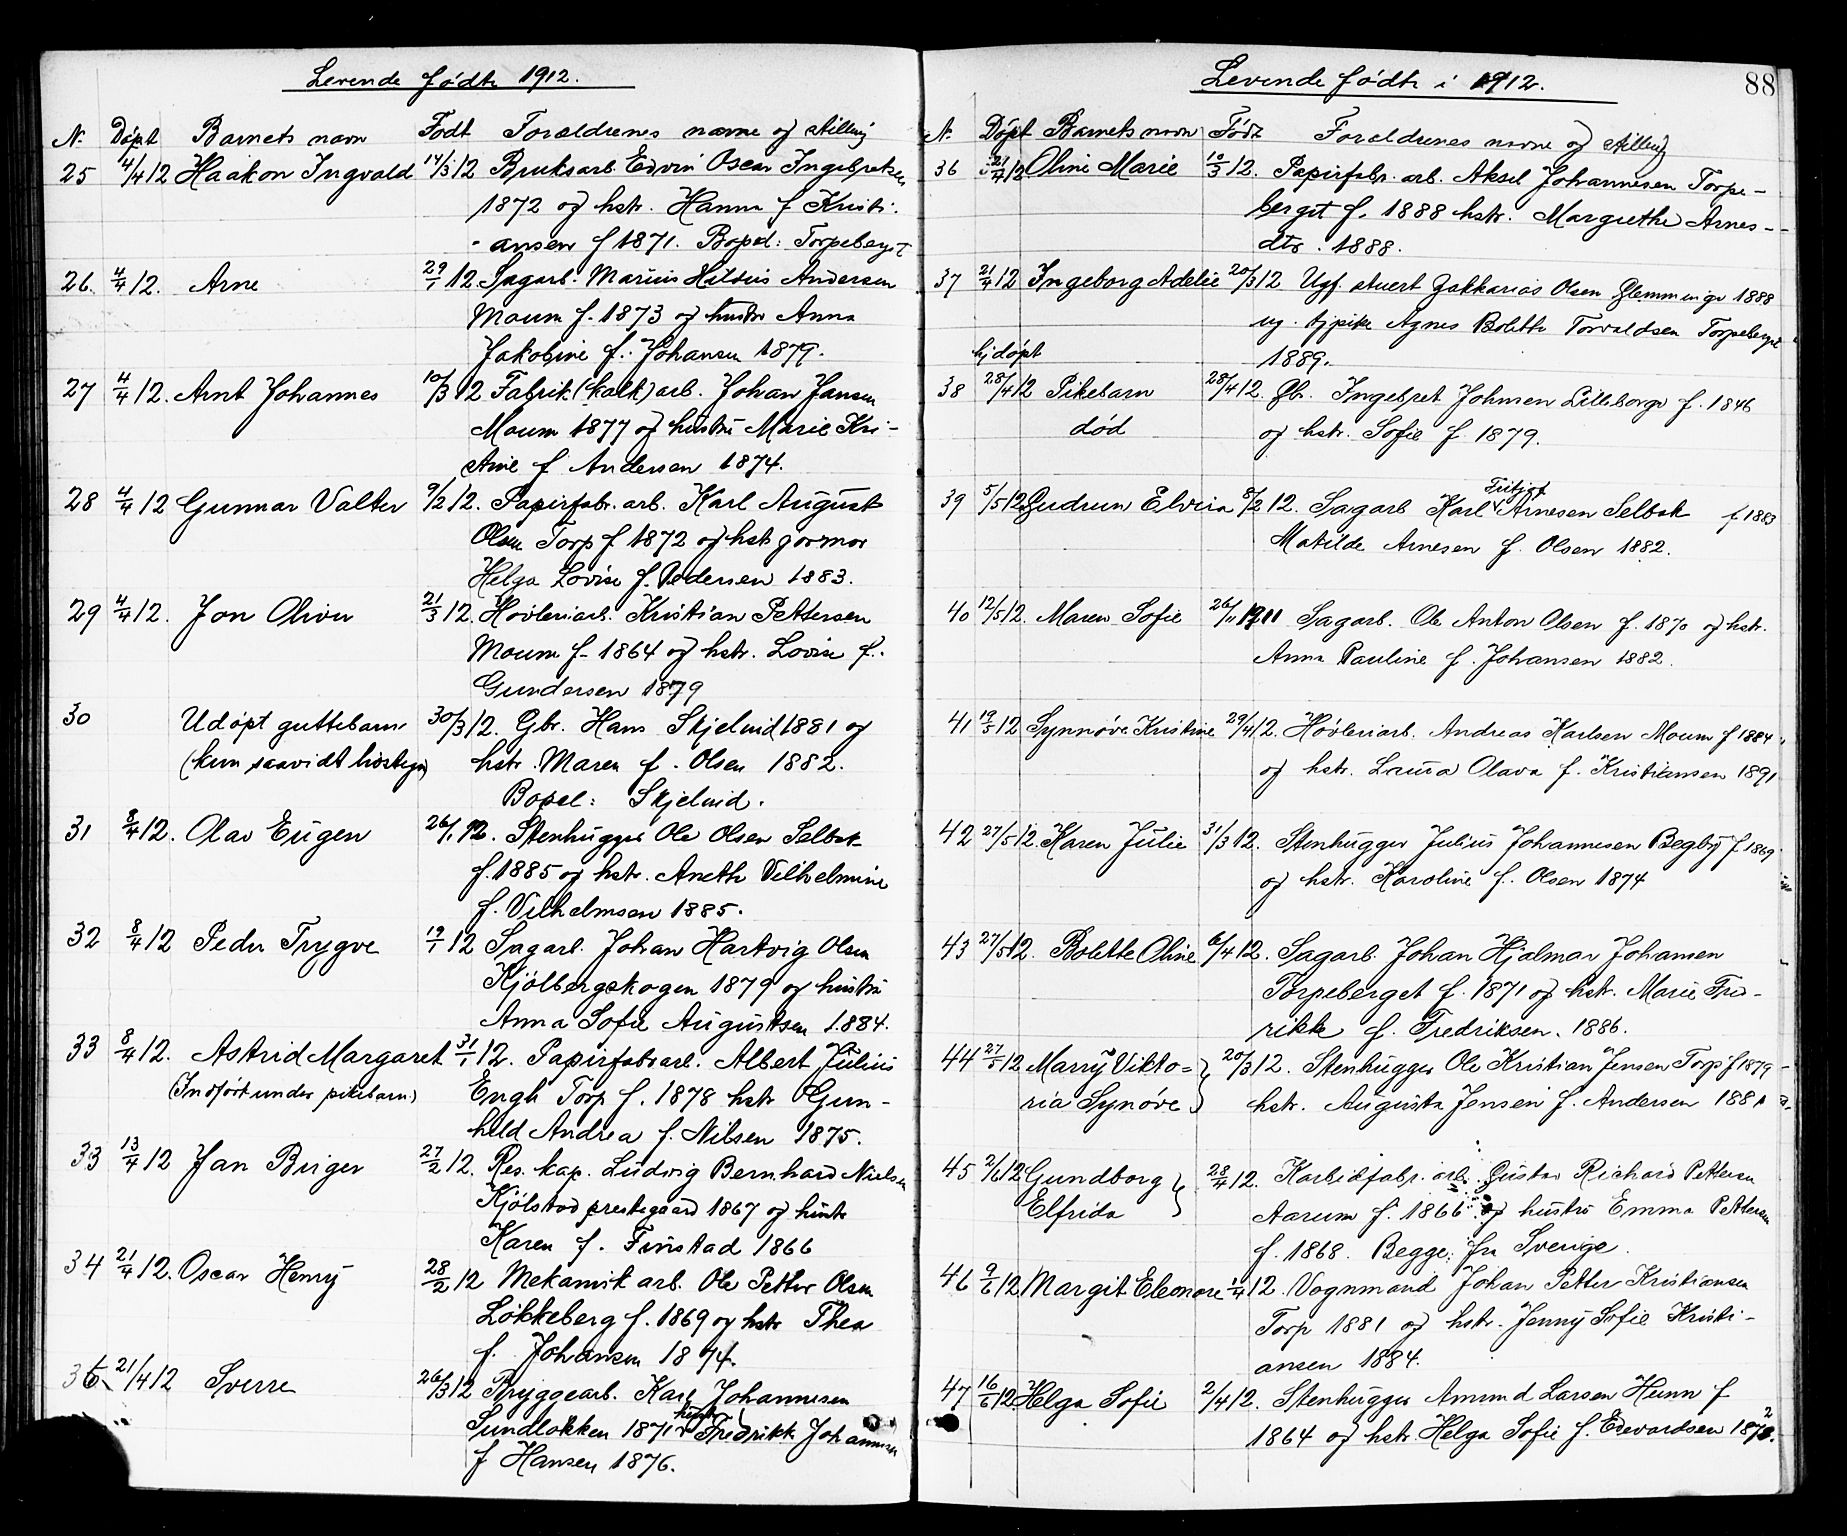 Levende födte 1912.
N. Döpt Barnets navn Födt Foraldrenes navne og stilling
25 4/4 12 Haakon Ingvald 14/3 12 Bruksarb. Edvin Oscar Ingebretsen
1872 og hstr. Hanna f Kristi-
ansen f 1871. Bopel: Torpeberget
26. 4/4 12. Arne 29/1 12. Sagarb. Marius Hilbius Andersen
Moum f. 1873 og hustr Anna
Jakobine f. Johansen 1879.
27 4/4 12. Arnt Johannes 10/3 12 Fabrik (kalk) arb. Johan Jansen
Moum 1877 og hustru Marie Kri-
stine f Andersen 1874.
28 4/4 12 Gunnar Valter 9/2 12. Papirfabr. arb. Karl August
Olsen Torp f 1872 og hst jormor
Helga Lovise f. Pedersen 1883.
29 4/4 12. Jon Oliver 21/3 12. Hövleriarb. Kristian Pettersen
Moum f. 1864 og hstr. Lovise f.
Gundersen 1879
30 Udöpt guttebarn 30/3 12. Gbr. Hans Skjelnid 1881 og
(kun saavidt livstegn) hstr. Maren f. Olsen 1882.
Bopel: Skjelnid.
31 8/4 12. Olav Eugen 26/1 12. Stenhugger Ole Olsen Selbak
f. 1885 og hstr. Anethe Vilhelmine
f. Vilhelmsen 1885.
32 8/4 12 Peder Trygve 19/1 12 Sagarb. Johan Hartvig Olsen
Kjölbergskogen 1879 og hustru
Anna Sofie Augustsen 1884.
33 8/4 12. Astrid Margaret 31/1 12. Papirfabrarb. Albert Julius
(Indfört under pikebarn) Engh Torp f. 1878 hstr Gun-
hild Andrea f. Nilsen 1875.
33 13/4 12 Jan Birger 27/2 12. Res. kap. Ludvig Bernhard Nielsen
Kjölstad prestegaard 1867 og hustr
Karen f. Finstad 1866
34 21/4 12. Oscar Henry 28/2 12 Mekanisk arb. Ole Petter Olsen
Lökkeberg f. 1869 og hstr Thea
f. Johansen 1874.
35 21/4 12 Sverre 26/3 12 Bryggearb. Karl Johannesen
hustr
Sundlökken 1871 Fredrikke Johannesen
f Hansen 1876.
Levende födte i 1912. 88
N. Döpt Barnets navn Födt Foraldrenes navne og stilling
36 21/4 12. Oline Marie 10/3 12. Papirfabr. arb. Aksel Johannesen Torpe-
berget f. 1888 hstr. Margrethe Arnes-
dtr. 1888.
37 21/4 12 Ingeborg Adelie 20/3 12 Ugf. stuert Zakkarias Olsen Glemminge 1888
ug. tjpike Agnes Bolette Torvaldsen Torpeberget
hjdöpt 1889.
38 28/4 12 Pikebarn 28/4 12. Gbr. Ingebret Johnsen Lilleborge f. 1846
död og hstr. Sofie f 1879.
39 5/5 12 Gudrun Elvira 8/2 12. Sagarb Karl Fritjof Arnesen Selbak f 1883
Matilde Arnesen f. Olsen 1882.
40 12/5 12. Maren Sofie 26/11 1911 Sagarb. Ole Anton Olsen f. 1870 og hstr.
Anna Pauline f. Johansen 1882.
41 19/5 12 Synnöve Kristine 29/4 12. Hövleriarb. Andreas Karlsen Moum f 1884
og hstr. Laura Olava f. Kristiansen 1891
42 27/5 12. Karen Julie 31/3 12. Stenhugger Julius Johannesen Begby f. 1869
og hstr. Karoline f. Olsen 1874
43 27/5 12. Bolette Oline 6/4 12. Sagarb. Johan Hjalmar Johansen
Torpeberget f. 1871 og hstr. Marie Fred-
rikke f. Fredriksen. 1886.
44 27/5 12 Marry Vikto- 20/3 12. Stenhugger Ole Kristian Jensen Torp f 1879
ria Synöve hstr. Augusta Jensen f. Andersen 1881
45 2/6 12 Gundborg 28/4 12. Karbidfabr. arb. Gustav Richard Pettersen
Elfrida Aarum f. 1866 og hustru Emma Pettersen
f. 1868. Begge fra Sverige.
46 9/6 12 Margit Eleonore 1/4 12. Vognmand Johan Petter Kristiansen
Torp 1881 og hstr. Jenny Sofie Kristi-
ansen 1884.
47 16/6 12. Helga Sofie 2/4 12. Stenhugger Amund Larsen Hunn f
1864 og hstr. Helga Sofie f. Edvardsen 1872.